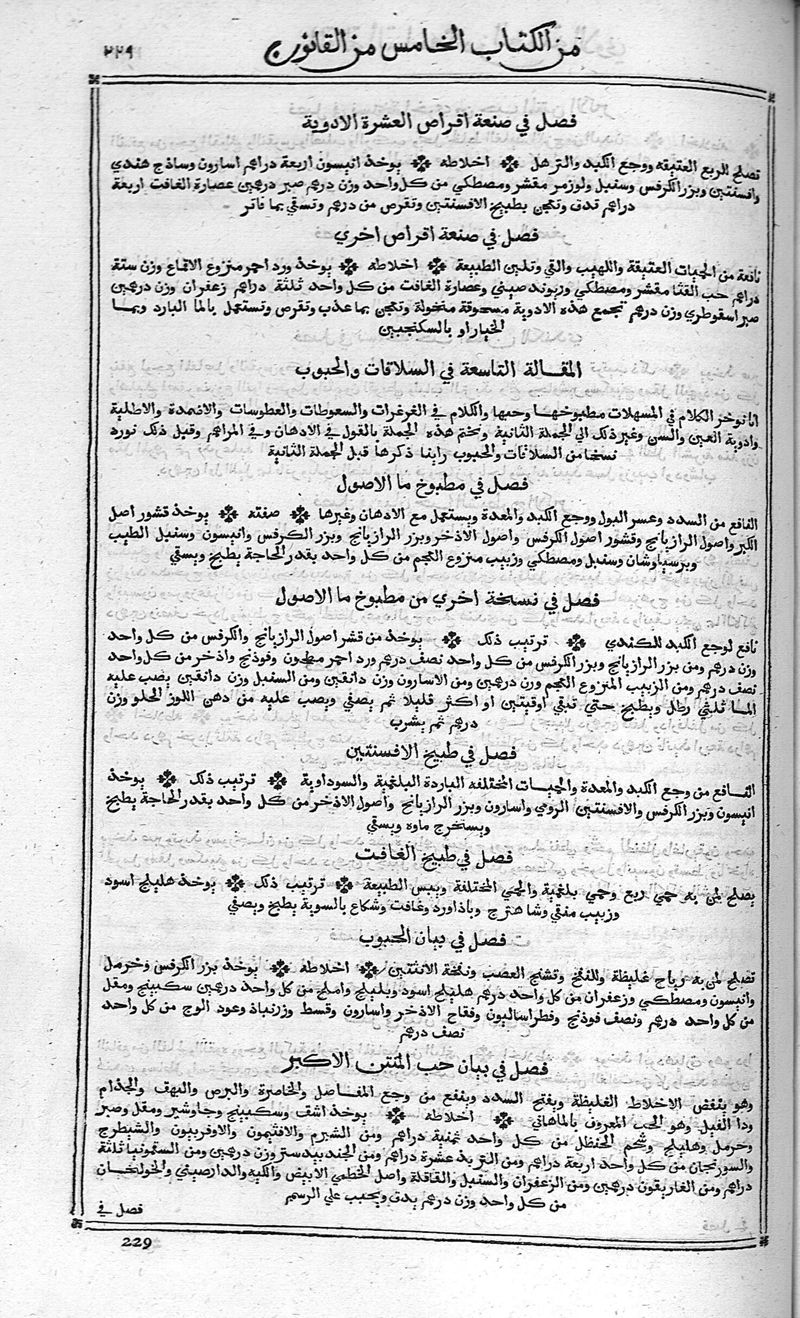 ٢٢٩ من الكتاب الخامس من القانون
فصل في صنعة اقراص العشرة الادوية
تصلح للربع العتيقه ووجع الكبد والترهل اخلاطه يوخذ انيسون اربعة دراهم اسارون وساذج هندي
وافسنتين وبزر الكرفس وسنبل ولوزمر مقشر ومصطكي من كل واحد وزن درهم صبر درهمين عصارة الغافت اربعة
دراهم تدق وتعجن بطبيخ الافسنتين وتقرص من درهم وتسقي بما فاتر
فصل في صنعة اقراص اخري
نافعة من الحميات العتيقة واللهيب والقي وتلين الطبيعة اخلاطه يوخذ ورد احمر منزوع الاقماع وزن ستة
دراهم حب القثا مقشر ومصطكي وريوند صيني وعصارة الغافت من كل واحد ثلثة دراهم زعفران وزن درهمين
صبر اسقوطري وزن درهم تجمع هذه الادوية مسحوقة منخولة وتعجن بما عذب وتقرص وتستعمل بالما البارد وبما
الخيار او بالسكنجبين
المقالة التاسعة في السلاقات والحبوب
انا نوخر الكلام في المسهلات مطبوخها وحبها والكلام في الغرغرات والسعوطات والعطوسات والاضمدة والاطلية
وادوية العين والسن وغير ذلك الي الجملة الثانية ونختم هذه الجملة بالقول في الادهان وفي المراهم وقبل ذلك نورد
نسخا من السلاقات والحبوب راينا ذكرها قبل الجملة الثانية
فصل في مطبوخ ما الاصول
النافع من السدد وعسر البول ووجع الكبد والمعدة ويستعمل مع الادهان وغيرها صفته يوخذ قشور اصل
الكبر واصول الرازيانج وقشور اصول الكرفس واصول الاذخر وبزر الرازيانج وبزر الكرفس وانيسون وسنبل الطيب
وبرسياوشان وسنبل ومصطكي وزبيب منزوع العجم من كل واحد بقدر الحاجة يطبخ ويسقي
فصل في نسخة اخري من مطبوخ ما الاصول
نافع لوجع الكبد للكندي ترتيب ذلك يوخذ من قشر اصول الرازيانج والكرفس من كل واحد
وزن درهم ومن بزر الرازيانج وبزر الكرفس من كل واحد نصف درهم ورد احمر مطحون وفوذنج واذخر من كل واحد
نصف درهم ومن الزبيب المنزوع العجم وزن درهمين ومن الاسارون وزن دانقين ومن السنبل وزن دانقين يصب عليه
الما ثلثي رطل ويطبخ حتي تبقي اوقيتين او اكثر قليلا ثم يصفي ويصب عليه من دهن اللوز الحلو وزن
درهم ثم يشرب
فصل في طبيخ الافسنتين
النافع من وجع الكبد والمعدة والحميات المختلفه الباردة البلغمية والسوداوية ترتيب ذلك يوخذ
انيسون وبزر الكرفس والافسنتين الرومي واسارون وبزر الرازيانج واصول الاذخر من كل واحد بقدر الحاجة يطبخ
ويستخرج ماوه ويسقي
فصل في طبيخ الغافت
يصلح لمن به حمي ربع وحمي بلغمية والحمي المختلفة ويبس الطبيعة ترتيب ذلك يوخذ هليلج اسود
وزبيب منقي وشاهترج وباذاورد وغافت وشكاع بالسوية يطبخ ويصفي
فصل في بيان الحبوب
تصلح لمن به رياح غليظة وللفتق وتشنج العصب ونفخة الانثيين اخلاطه يوخذ بزر الكرفس وحرمل
وانيسون ومصطكي وزعفران من كل واحد درهم هليلج اسود وبليلج واملج من كل واحد درهمين سكبينج ومقل
من كل واحد درهم ونصف فوذنج وفطراساليون وفقاح الاذخر واسارون وقسط وزرنباذ وعود الوج من كل واحد
نصف درهم
فصل في بيان حب المنتن الاكبر
وهو ينفض الاخلاط الغليظة ويفتح السدد وينفع من وجع المفاصل والخاصرة والبرص والبهق والجذام
ودا الفيل وهو الحب المعروف بالماهاني اخلاطه يوخذ اشق وسكبينج وجاوشير ومقل وصبر
وحرمل وهليلج وشحم الحنظل من كل واحد ثمنية دراهم ومن الشبرم والافثيمون والاوفربيون والشيطرج
والسورنجان من كل واحد اربعة دراهم ومن التربد عشرة دراهم ومن الجندبيدستر وزن درهمين ومن السقمونيا ثلثة
دراهم ومن الغاريقون درهمين ومن الزعفران والسنبل والقاقلة واصل الخطمي الابيض والكيه والدارصيني والخولنجان
من كل واحد وزن درهم يدق ويحبب علي الرسم
فصل في
229